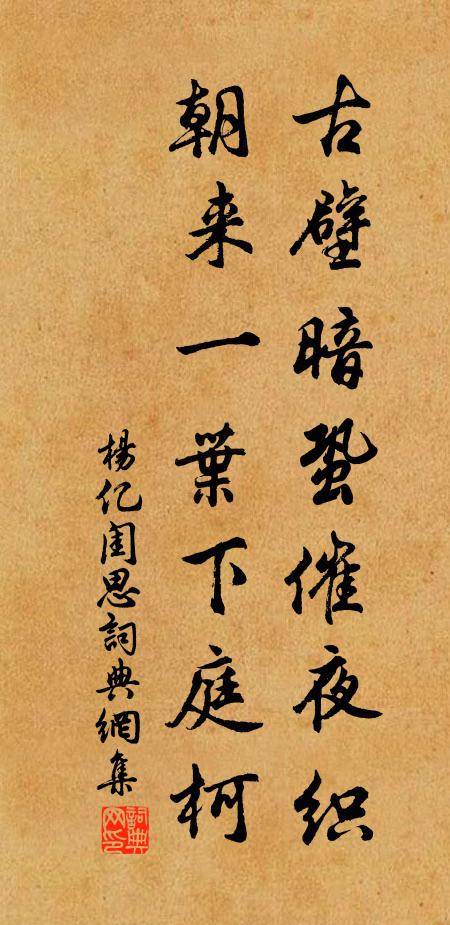 古壁暗蛩催夜织
朝来一葉下庭柯
楊亿闺思詞典網集
詞典网印